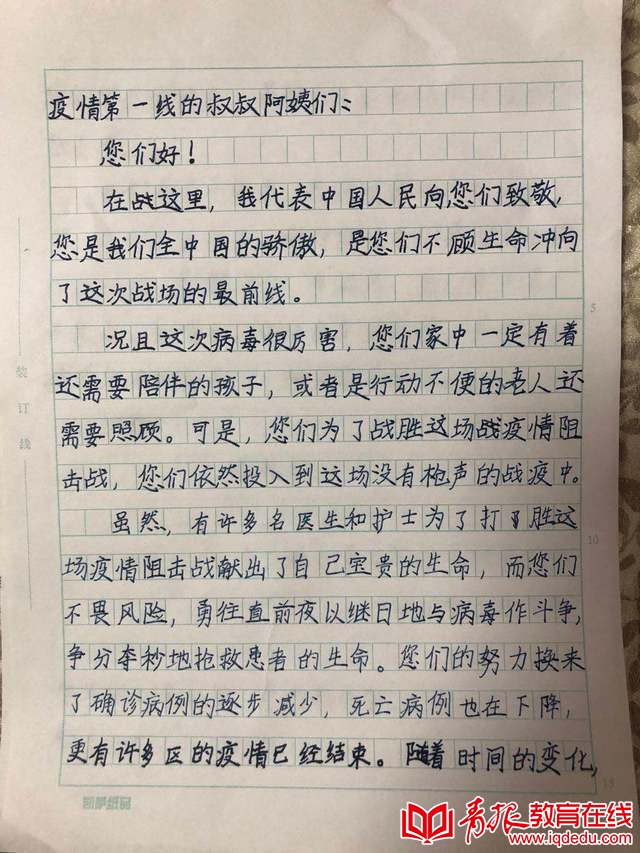 疫情第一线的叔叔阿姨们:
您们好！
在战这里，我代表中国人民向您们致敬，
您是我们全中国的骄傲，是您们不顾生命冲向
了这次战场的最前线。
况且这次病毒很厉害，您们家中一定有着
还需要陪伴的孩子，或者是行动不便的老人还
需要照顾。可是，您们为了战胜这场战疫情阻
击战，您们依然投入到这场没有枪声的战疫中。
虽然，有许多名医生和护士为了打胜这
场疫情阻击战献出了自己宝贵的生命，而您们
不畏风险，勇往直前夜以继日地与病毒作斗争，
争分夺秒地抢救患者的生命。您们的努力换来
了确诊病例的逐步减少，死亡病例也在下降，
更有许多区的疫情已经结束。随着时间的变化，
装订线
5
10
15
青报教育在线
www.iqdedu.com